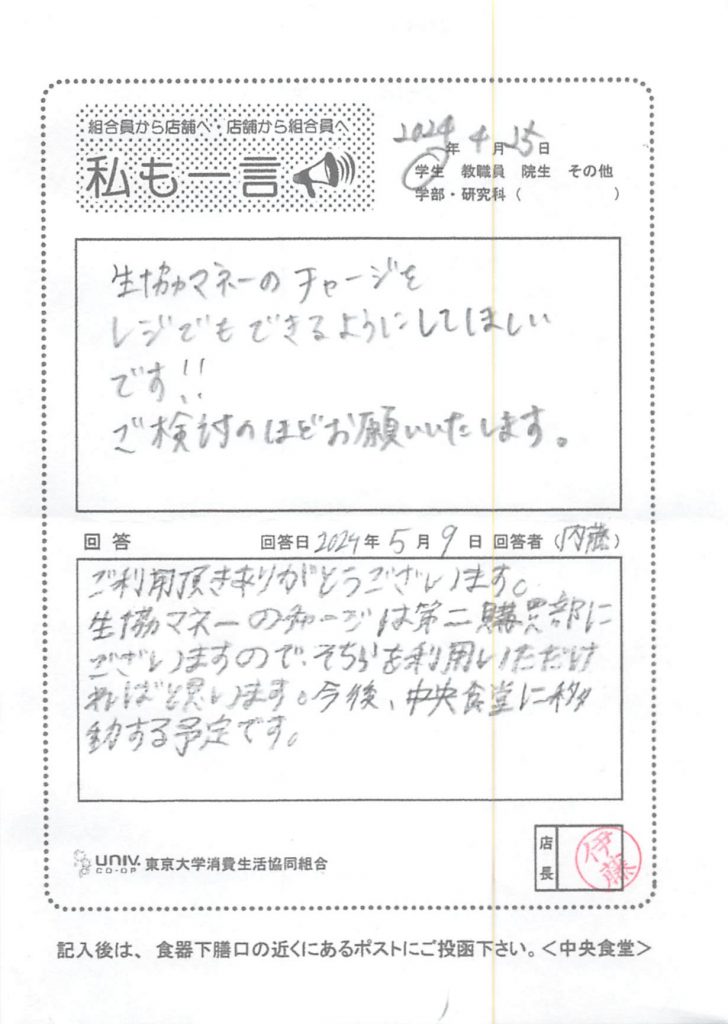 組合員から店舗へ・店舗から組合員へ
私も一言
2024年4月25日
学生 教職員 院生 その他
学部・研究科（ ）
生協マネーのチャージを
レジでもできるようにしてほしい
です!!
ご検討のほどお願いいたします。
回答 回答日2024年5月9日 回答者（内藤）
ご利用頂きありがとうございます。
生協マネーのチャージは第二購買部に
ございますので、そちらを利用いただけ
ればと思います。今後、中央食堂に移
動する予定です。
UNIV. CO-OP 東京大学消費生活協同組合
店長
伊藤
記入後は、食器下膳口の近くにあるポストにご投函下さい。＜中央食堂＞